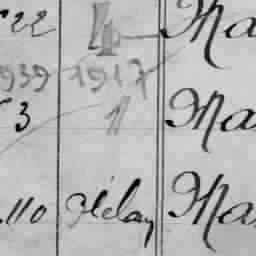 22 4 Ma
1939 1917
3 11 Ma
110 Ma